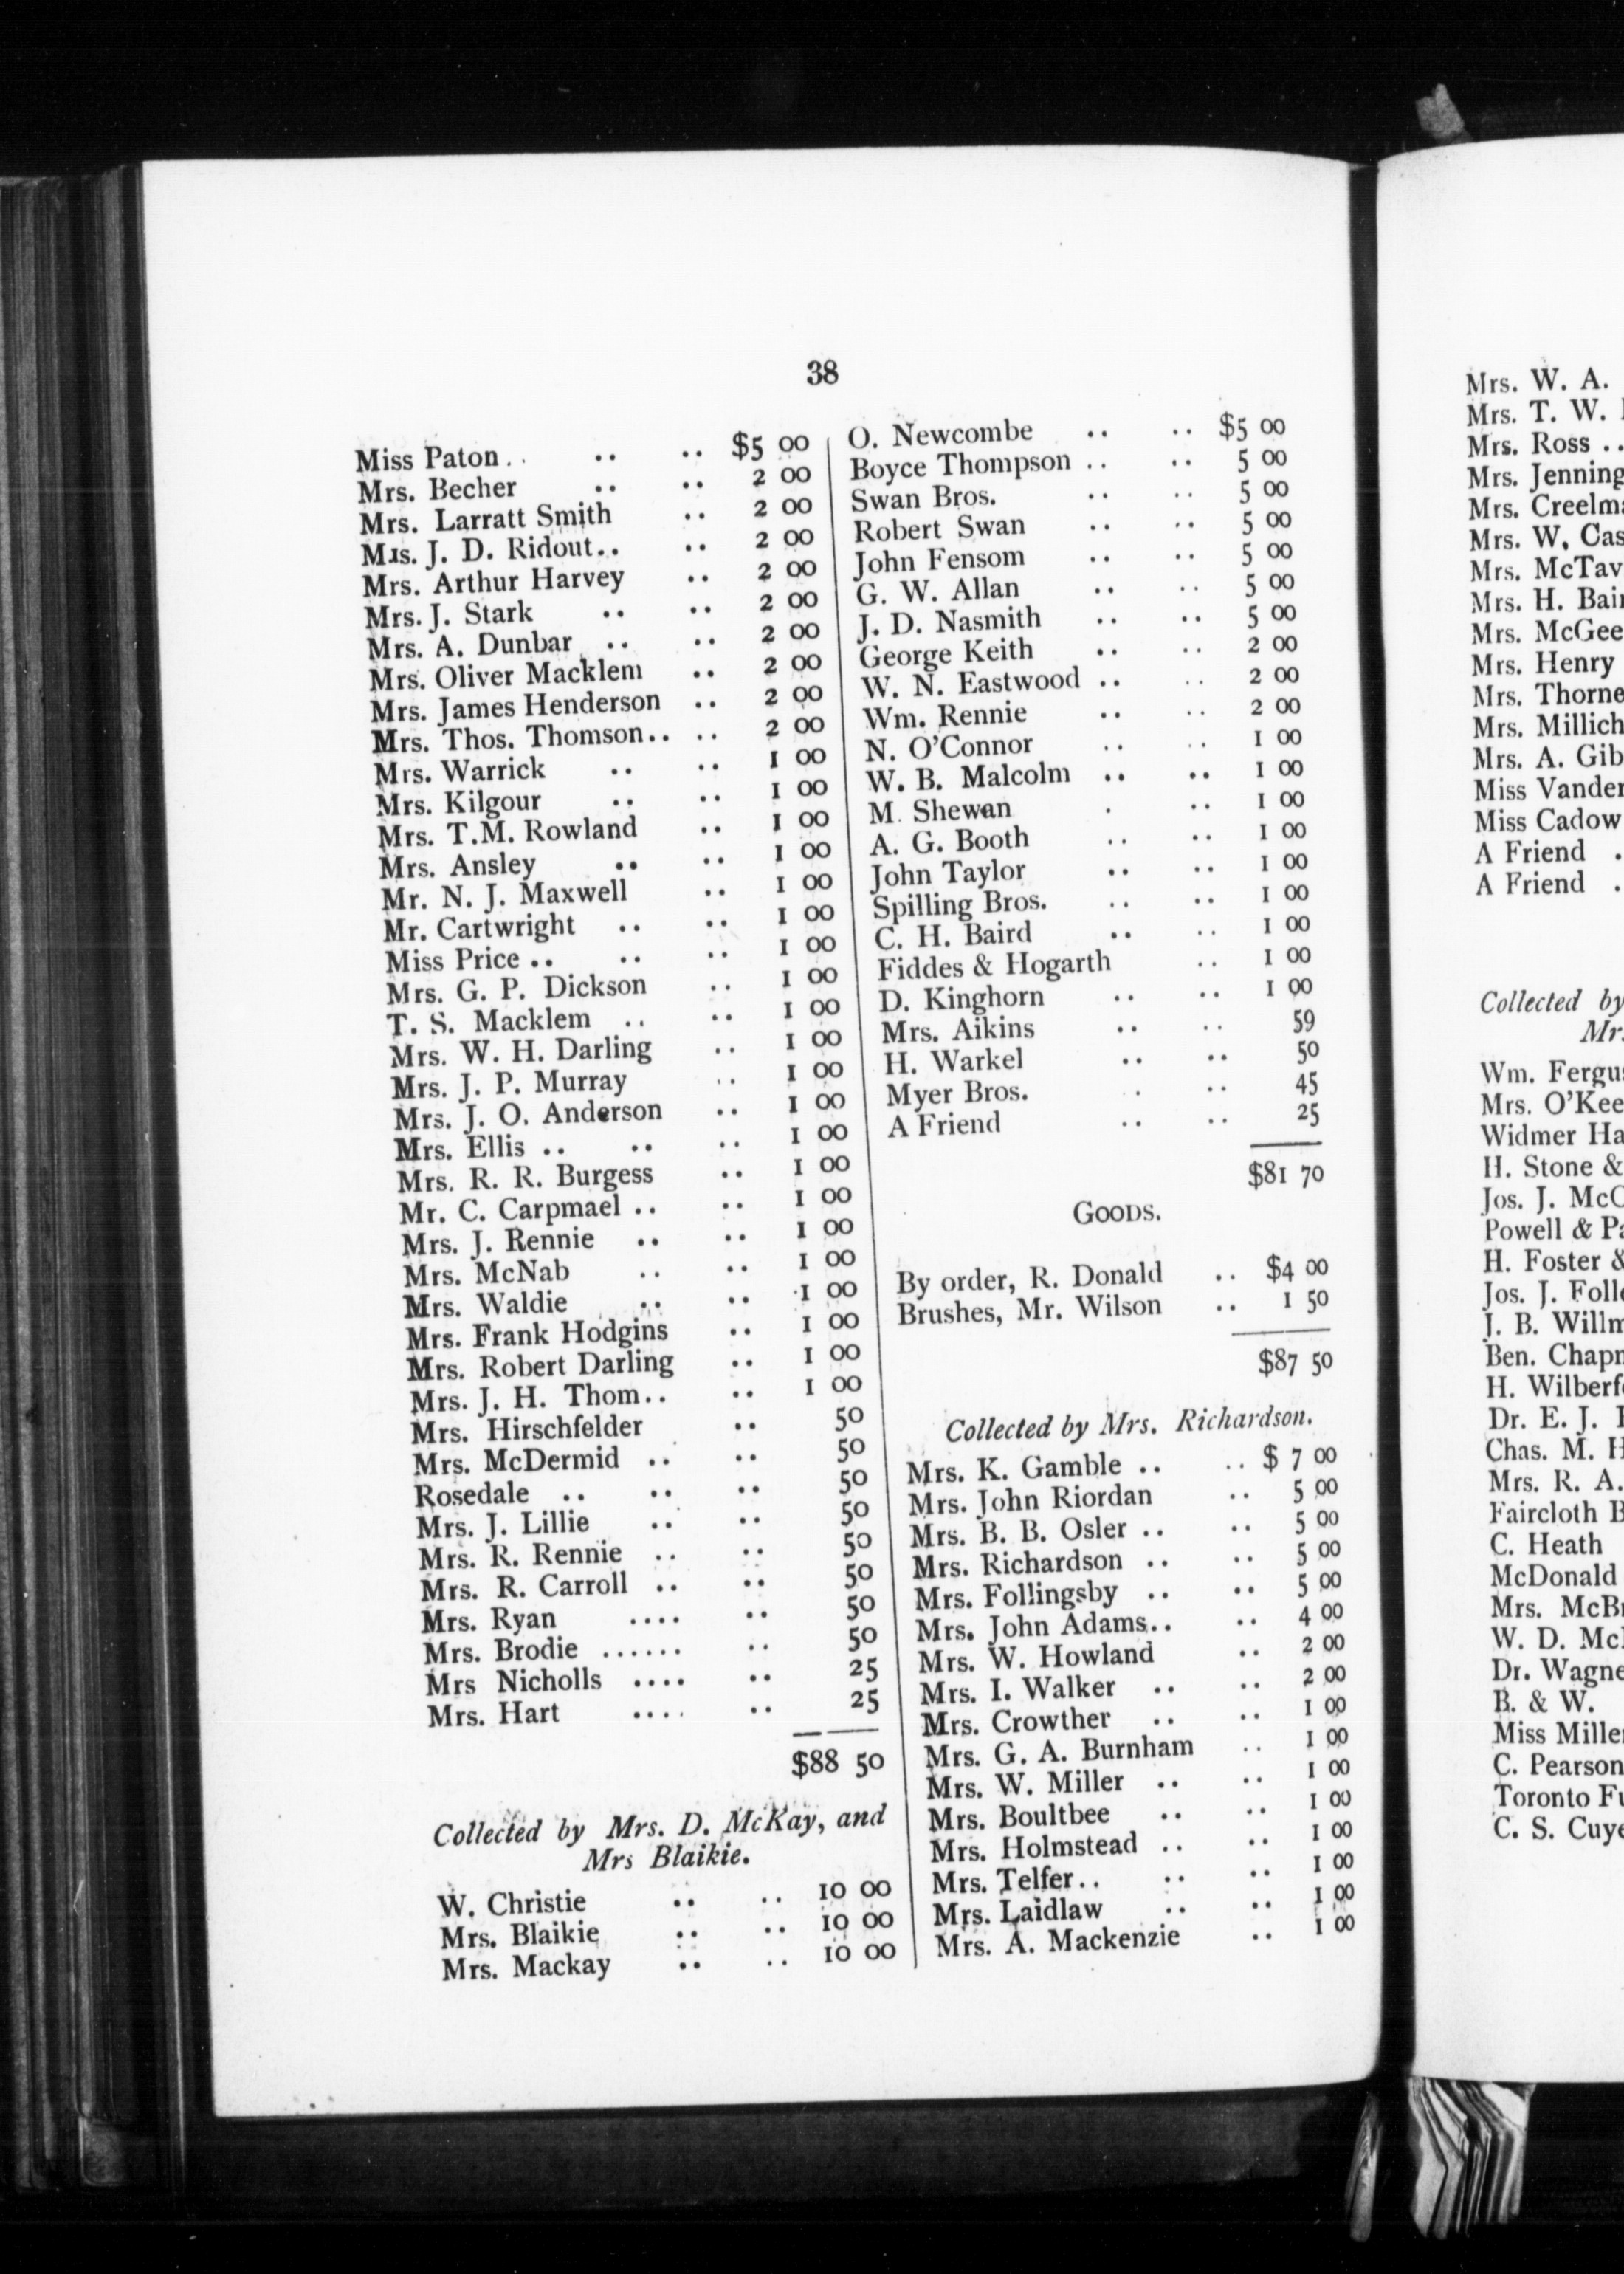 38
Miss Paton.. .. .. $5 00
Mrs. Becher .. .. 2 00
Mrs. Larratt Smith .. 2 00
Mrs. J. D. Ridout.. .. 2 00
Mrs. Arthur Harvey .. 2 00
Mrs. J. Stark .. .. 2 00
Mrs. A. Dunbar .. .. 2 00
Mrs. Oliver Macklem .. 2 00
Mrs. James Henderson .. 2 00
Mrs. Thos. Thomson.. .. 2 00
Mrs. Warrick .. .. 1 00
Mrs. Kilgour .. .. 1 00
Mrs. T.M. Rowland .. 1 00
Mrs. Ansley .. .. 1 00
Mr. N. J. Maxwell .. 1 00
Mr. Cartwright .. .. 1 00
Miss Price .. .. .. 1 00
Mrs. G. P. Dickson .. 1 00
T. S. Macklem .. .. 1 00
Mrs. W. H. Darling .. 1 00
Mrs. J. P. Murray .. 1 00
Mrs. J. O. Anderson .. 1 00
Mrs. Ellis .. .. .. 1 00
Mrs. R. R. Burgess .. 1 00
Mr. C. Carpmael .. .. 1 00
Mrs. J. Rennie .. .. 1 00
Mrs. McNab .. .. 1 00
Mrs. Waldie .. .. 1 00
Mrs. Frank Hodgins .. 1 00
Mrs. Robert Darling .. 1 00
Mrs. J. H. Thom.. .. 1 00
Mrs. Hirschfelder .. 50
Mrs. McDermid .. .. 50
Rosedale .. .. .. 50
Mrs. J. Lillie .. .. 50
Mrs. R. Rennie .. .. 50
Mrs. R. Carroll .. .. 50
Mrs. Ryan .... .. 50
Mrs. Brodie ...... .. 50
Mrs Nicholls .... .. 25
Mrs. Hart .... .. 25
$88 50
Collected by Mrs. D. McKay, and
Mrs Blaikie.
W. Christie .. .. 10 00
Mrs. Blaikie .. .. 10 00
Mrs. Mackay .. .. 10 00
O. Newcombe .. .. $5 00
Boyce Thompson .. .. 5 00
Swan Bros. .. .. 5 00
Robert Swan .. .. 5 00
John Fensom .. .. 5 00
G. W. Allan .. .. 5 00
J. D. Nasmith .. .. 5 00
George Keith .. .. 2 00
W. N. Eastwood .. .. 2 00
Wm. Rennie .. .. 2 00
N. O'Connor .. .. 1 00
W. B. Malcolm .. .. 1 00
M. Shewan . .. 1 00
A. G. Booth .. .. 1 00
John Taylor .. .. 1 00
Spilling Bros. .. .. 1 00
C. H. Baird .. .. 1 00
Fiddes & Hogarth .. 1 00
D. Kinghorn .. .. 1 00
Mrs. Aikins .. .. 59
H. Warkel .. .. 50
Myer Bros. . .. 45
A Friend .. .. 25
$81 70
GOODS.
By order, R. Donald .. $4 00
Brushes, Mr. Wilson .. 1 50
$87 50
Collected by Mrs. Richardson.
Mrs. K. Gamble .. .. $ 7 00
Mrs. John Riordan .. 5 00
Mrs. B. B. Osler .. .. 5 00
Mrs. Richardson .. .. 5 00
Mrs. Follingsby .. .. 5 00
Mrs. John Adams.. .. 4 00
Mrs. W. Howland .. 2 00
Mrs. I. Walker .. .. 2 00
Mrs. Crowther .. .. 1 00
Mrs. G. A. Burnham .. 1 00
Mrs. W. Miller .. .. 1 00
Mrs. Boultbee .. .. 1 00
Mrs. Holmstead .. .. 1 00
Mrs. Telfer.. .. .. 1 00
Mrs. Laidlaw .. .. 1 00
Mrs. A. Mackenzie .. 1 00
Mrs. W. A.
Mrs. T. W.
Mrs. Ross ..
Mrs. Jenning
Mrs. Creelma
Mrs. W. Cas
Mrs. McTav
Mrs. H. Bair
Mrs. McGee
Mrs. Henry
Mrs. Thorne
Mrs. Millich
Mrs. A. Gib
Miss Vander
Miss Cadow
A Friend .
A Friend .
Collected by
Mrs.
Wm. Fergus
Mrs. O'Kee
Widmer Ha
H. Stone &
Jos. J. McC
Powell & Pa
H. Foster &
Jos. J. Folle
J. B. Willm
Ben. Chapm
H. Wilberfo
Dr. E. J.
Chas. M. H
Mrs. R. A.
Faircloth B
C. Heath
McDonald
Mrs. McBr
W. D. Mc
Dr. Wagne
B. & W.
Miss Miller
C. Pearson
Toronto Fu
C. S. Cuye